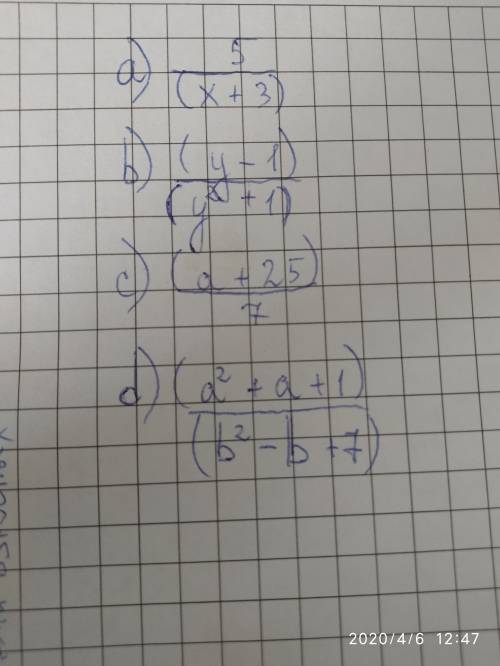 a) 5/(x + 3)
b) (y - 1)/(y² + 1)
c) (a + 25)/7
d) (a² + a + 1)/(b² - b + 7)
2020/4/6 12:47